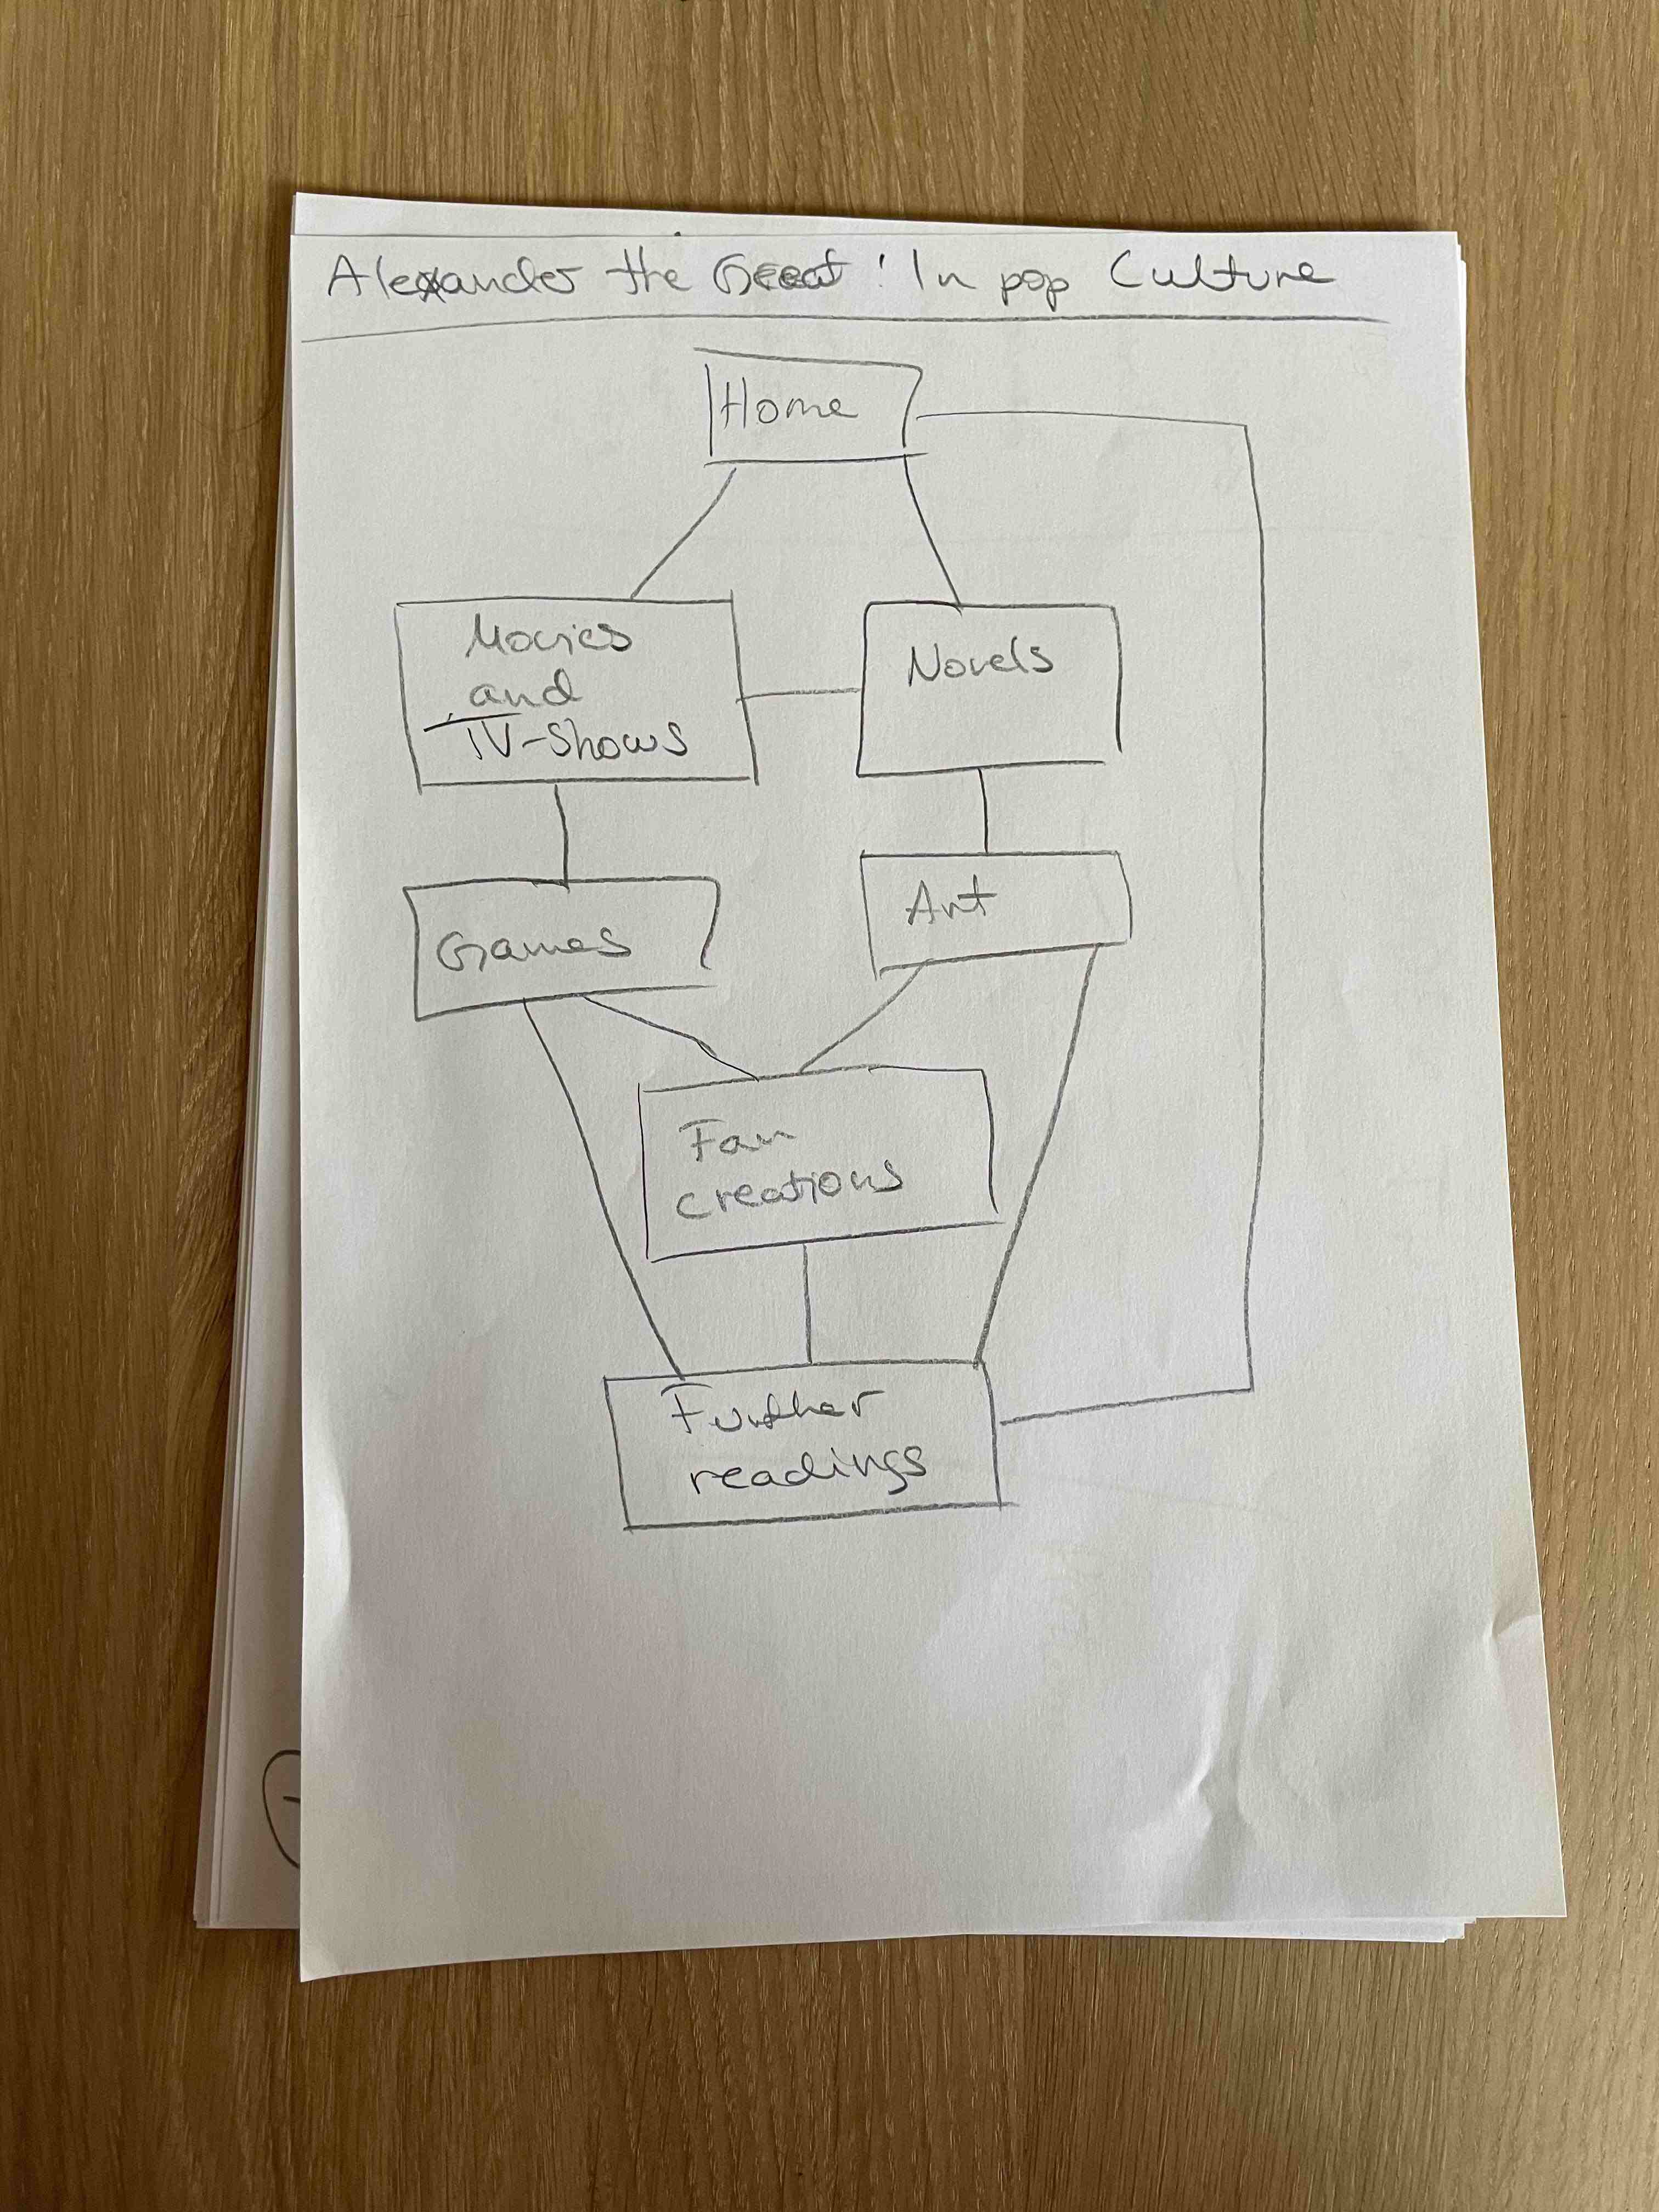 Alexander the Great: In pop Culture
Home
Movies
and
TV-Shows
Novels
Games
Art
Fan
creations
Further
readings